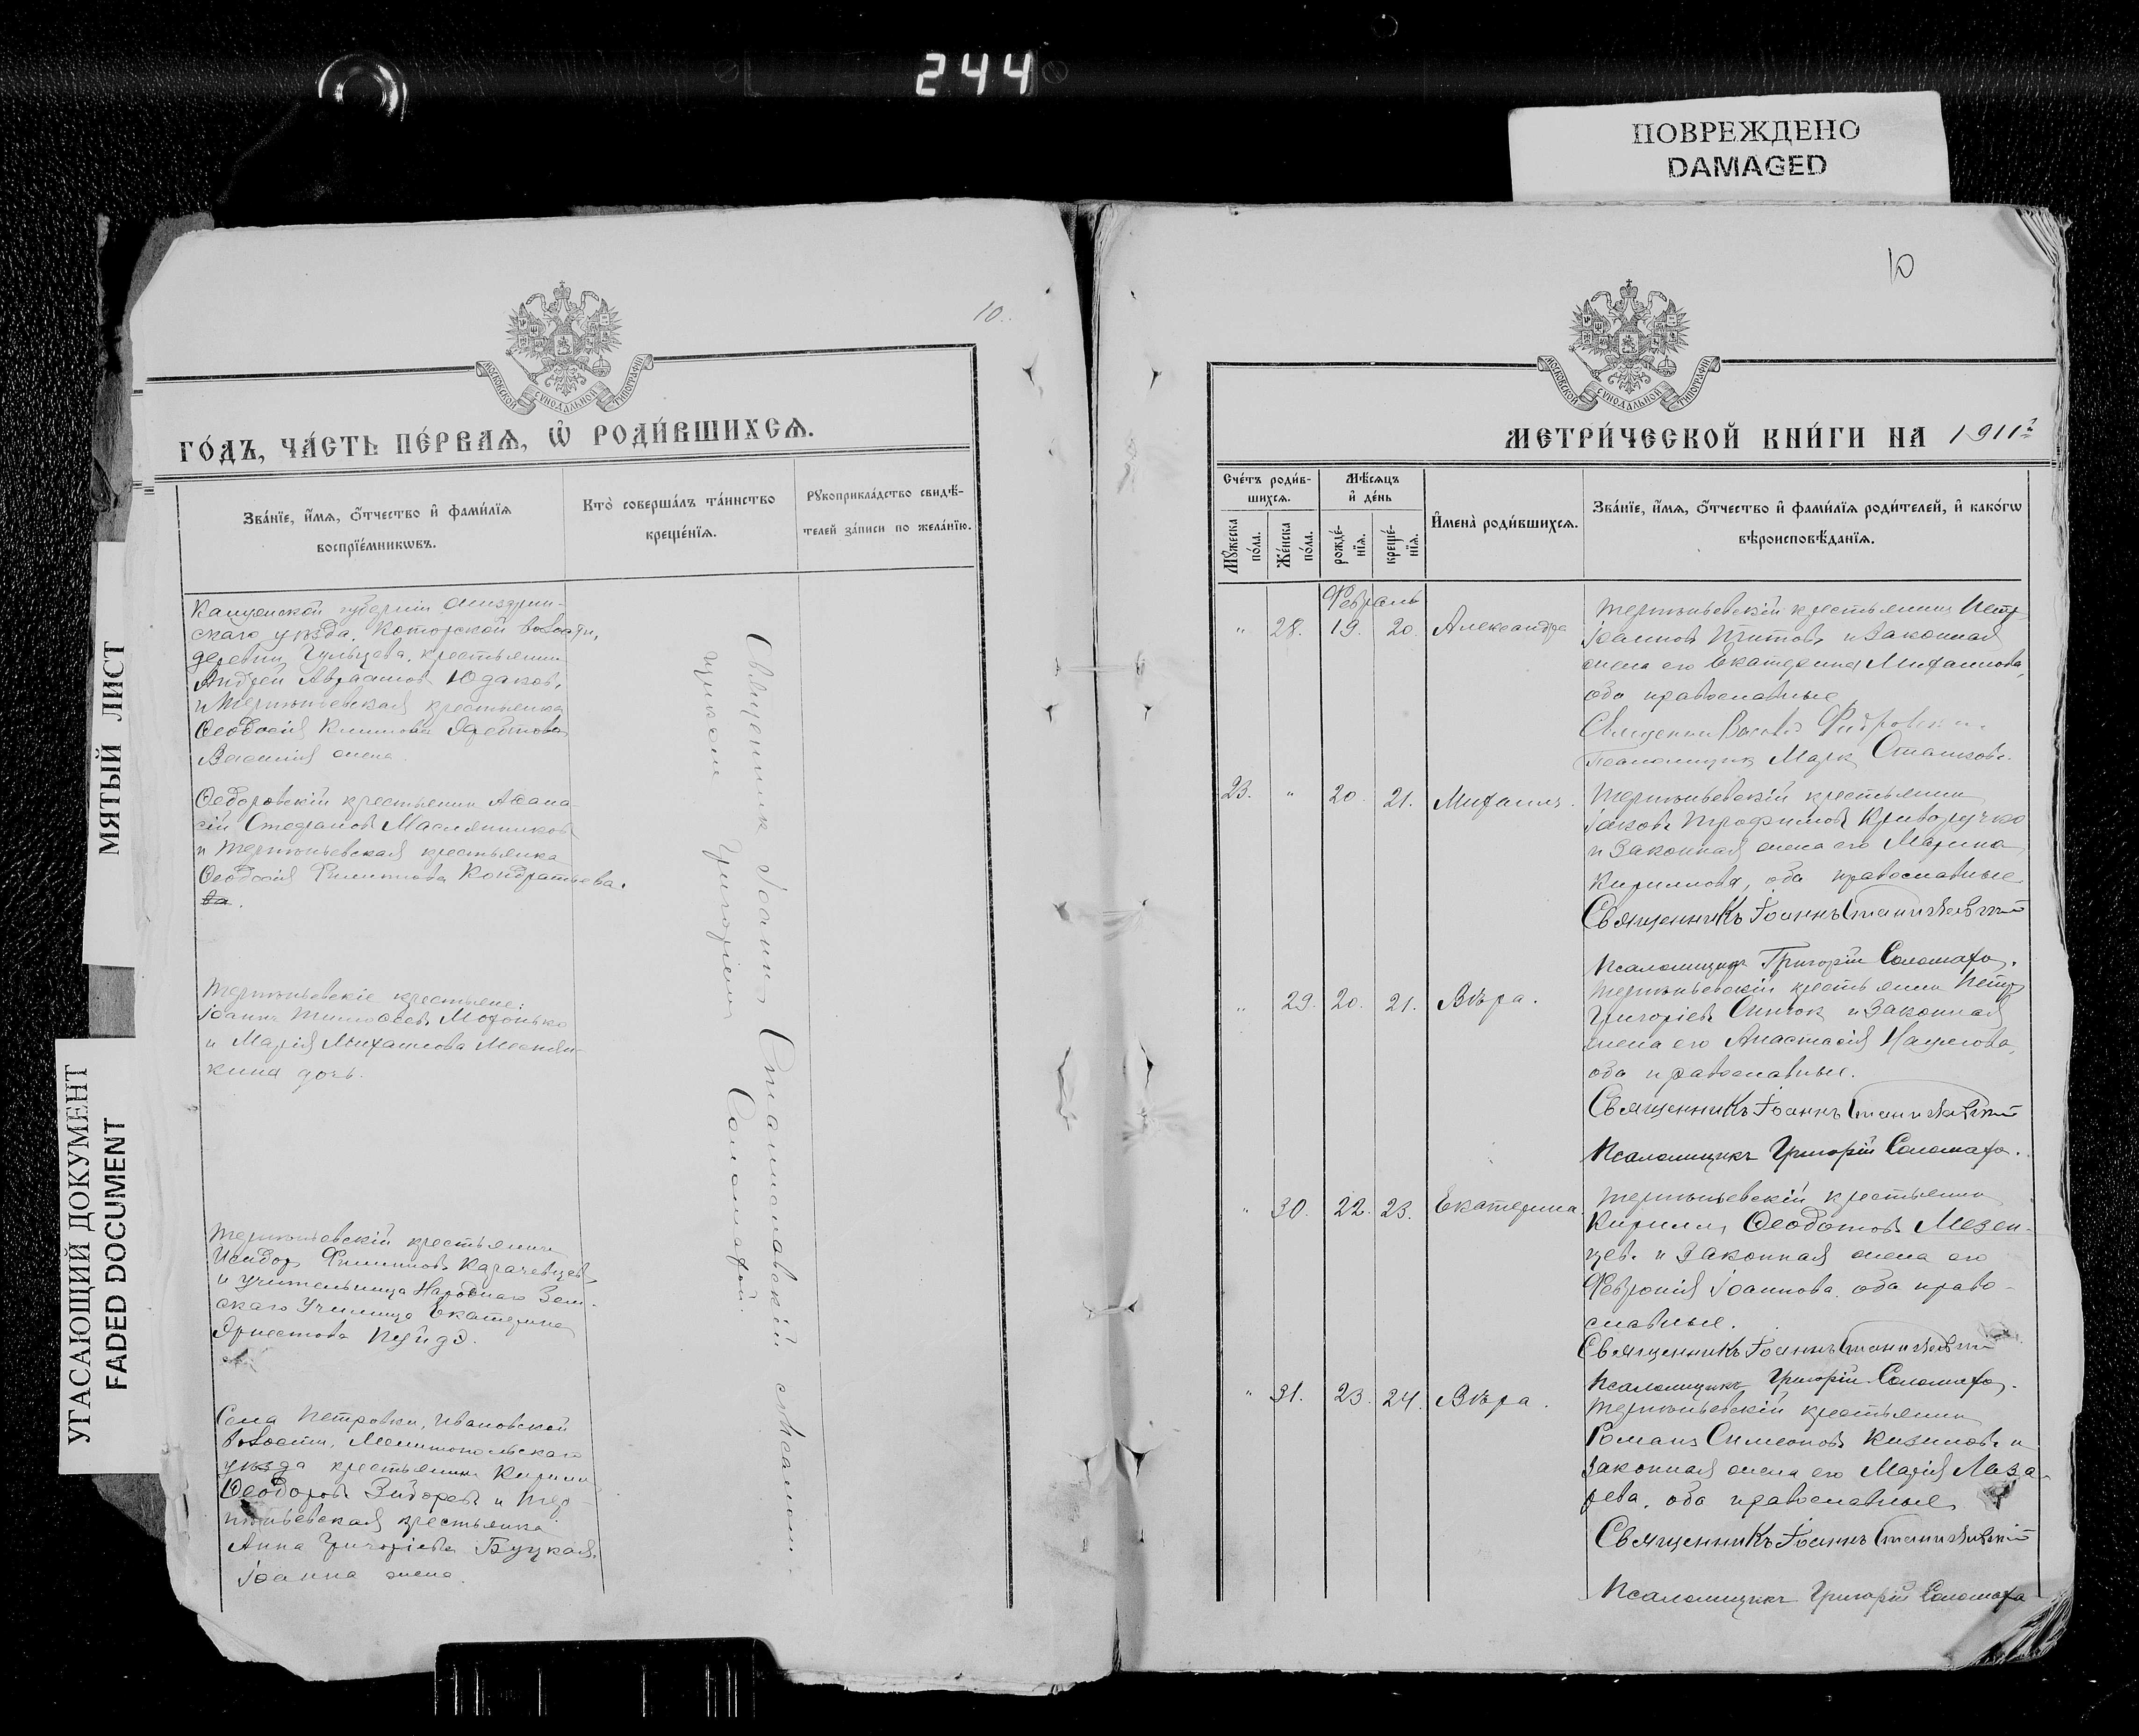 244
ПОВРЕЖДЕНО
DAMAGED
МЯТЫЙ ЛИСТ
УГАСАЮЩИЙ ДОКУМЕНТ
FADED DOCUMENT
10.
МОСКОВСКОЙ СѴНОДАЛЬНОЙ ТИПОГРАФІИ
ГО́ДЪ, ЧА́СТЬ ПЕ́РВАѦ, Ѡ҆ РОДИ́ВШИХСѦ.
Зва́нїе, и҆́мѧ, ѻ҆́тчество и҆ фами́лїѧ
воспрїе́мникѡвъ.
Кто̀ соверша́лъ та́инство
креще́нїѧ.
Рꙋкоприкла́дство свидѣ́-
телей за́писи по жела́нїю.
Калужской губерніи Жиздрин-
скаго уѣзда, Которской волости,
деревни Гульцева, крестьянин
Андрей Авраамовъ Юдаковъ,
и Терпѣньевская крестьянка
Ѳеодосія Климова
Василія жена.
Ѳедоровскій крестьянин Аѳана-
сій Стефановъ Маслянниковъ
и Терпѣньевская крестьянка
Ѳеодосія Филиппова Кондратьева.
ва.
Терпѣньевскіе крестьяне:
Іоаннъ Тимоѳеевъ
и Марія Михаилова
кина дочь.
Терпѣньевскій крестьянинъ
Исидоръ Филипповъ Карачевцевъ
и учительница Народнаго Зем-
скаго Училища Екатерина
Села Петровки, Ивановской
волости, Мелитопольскаго
уѣзда крестьянинъ Кириллъ
Ѳеодоровъ и Тер-
пѣньевская крестьянка
Анна Григоріева Буцкая,
Іоанна жена.
Священникъ Іоаннъ Станиславскій съ Псалом-
щикомъ Григоріемъ Соломахой.
10
МОСКОВСКОЙ СѴНОДАЛЬНОЙ ТИПОГРАФІИ
МЕТРИ́ЧЕСКОЙ КНИ́ГИ НА 1911 г.
Сче́тъ роди́в-
шихсѧ.
Мꙋ́жеска
по́ла.
Же́нска
по́ла.
Мѣ́сѧцъ
и҆ де́нь
рожде́-
нїѧ.
креще́-
нїѧ.
И҆мена̀ роди́вшихсѧ.
Зва́нїе, и҆́мѧ, ѻ҆́тчество и҆ фами́лїѧ роди́телей, и҆ како́гѡ
вѣроисповѣ́данїѧ.
Февраль
" 28. 19. 20. Александра
Терпѣньевскій крестьянинъ Петръ
Іоанновъ Титовъ и законная
жена его Екатерина Михаилова,
оба православные
Псаломщикъ Маркъ
23. " 20. 21. Михаилъ.
Терпѣньевскій крестьянинъ
Іаковъ Трофимовъ Криворучко
и законная жена его Марина
Кириллова, оба православные
Священникъ Іоаннъ Станиславскій
Псаломщикъ Григорій Соломаха.
" 29. 20. 21. Вѣра.
Терпѣньевскій крестьянинъ Петръ
Григоріевъ и законная
жена его Анастасія Наумова,
оба православные.
Священникъ Іоаннъ Станиславскій
Псаломщикъ Григорій Соломаха.
" 30. 22. 23. Екатерина.
Терпѣньевскій крестьянинъ
Кириллъ Ѳеодотовъ Мезен-
цевъ и законная жена его
Февронія Іоаннова, оба право-
славные.
Священникъ Іоаннъ Станиславскій
Псаломщикъ Григорій Соломаха.
" 31. 23. 24. Вѣра.
Терпѣньевскій крестьянинъ
Романъ Симеоновъ Кизимовъ и
законная жена его Марія Лаза-
рева, оба православные
Священникъ Іоаннъ Станиславскій
Псаломщикъ Григорій Соломаха